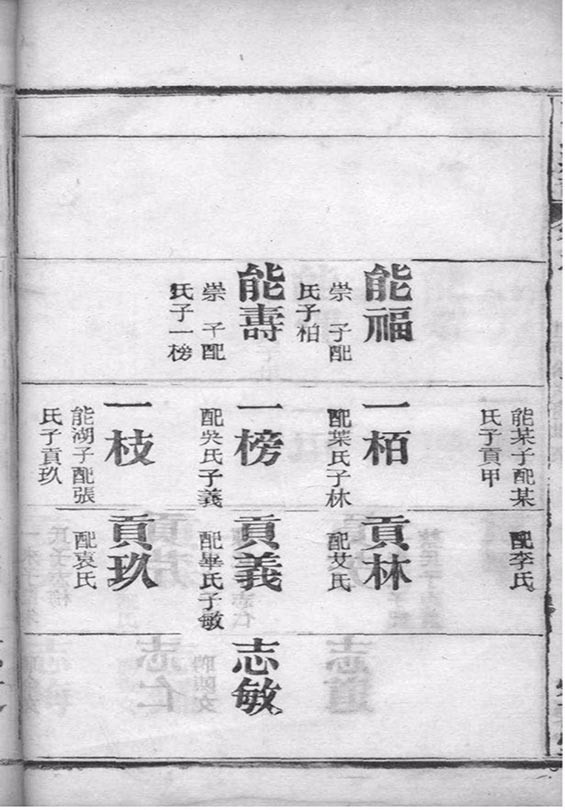 能福
崇 子配
氏子柏
能壽
崇 子配
氏子一榜
能某子配某
氏子貢甲
一栢
配葉氏子林
一榜
配吳氏子義
一枝
能湖子配張
氏子貢玖
配李氏
貢林
配艾氏
貢義
配畢氏子敏
貢玖
配袁氏
志敏